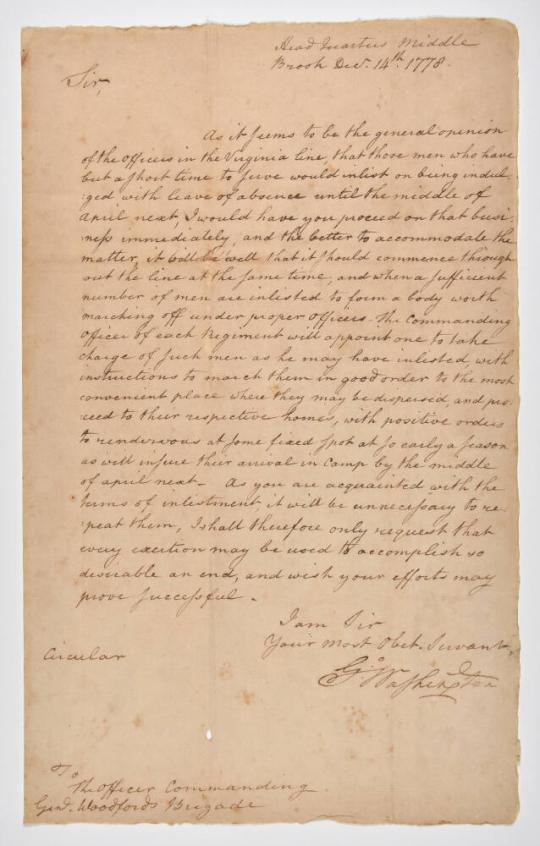 Head Quarters Middle
Brook Decr. 14th. 1778.
Sir,
As it seems to be the general opinion
of the officers in the Virginia line, that those men who have
but a short time to serve would inlist on being indul-
=ged with leave of absence until the middle of
April next, I would have you proceed on that busi-
=ness immediately, and the better to accommodate the
matter, it will be well that it should commence through
out the line at the same time, and when a sufficient
number of men are inlisted to form a body worth
marching off under proper officers - the Commanding
officer of each Regiment will appoint one to take
charge of such men as he may have inlisted, with
instructions to march them in good order to the most
convenient place where they may be dispersed, and pro-
=ceed to their respective homes, with positive orders
to rendezvous at some fixed spot at so early a season
as will insure their arrival in Camp by the middle
of april next - As you are acquainted with the
terms of inlistment, it will be unnecessary to re-
=peat them, I shall therefore only request that
every exertion may be used to accomplish so
desirable an end, and wish your efforts may
prove successful -
I am Sir
Your Most Obet. Servant,
Go: Washington
Circular
To
The Officer Commanding
Genl. Woodfords Brigade